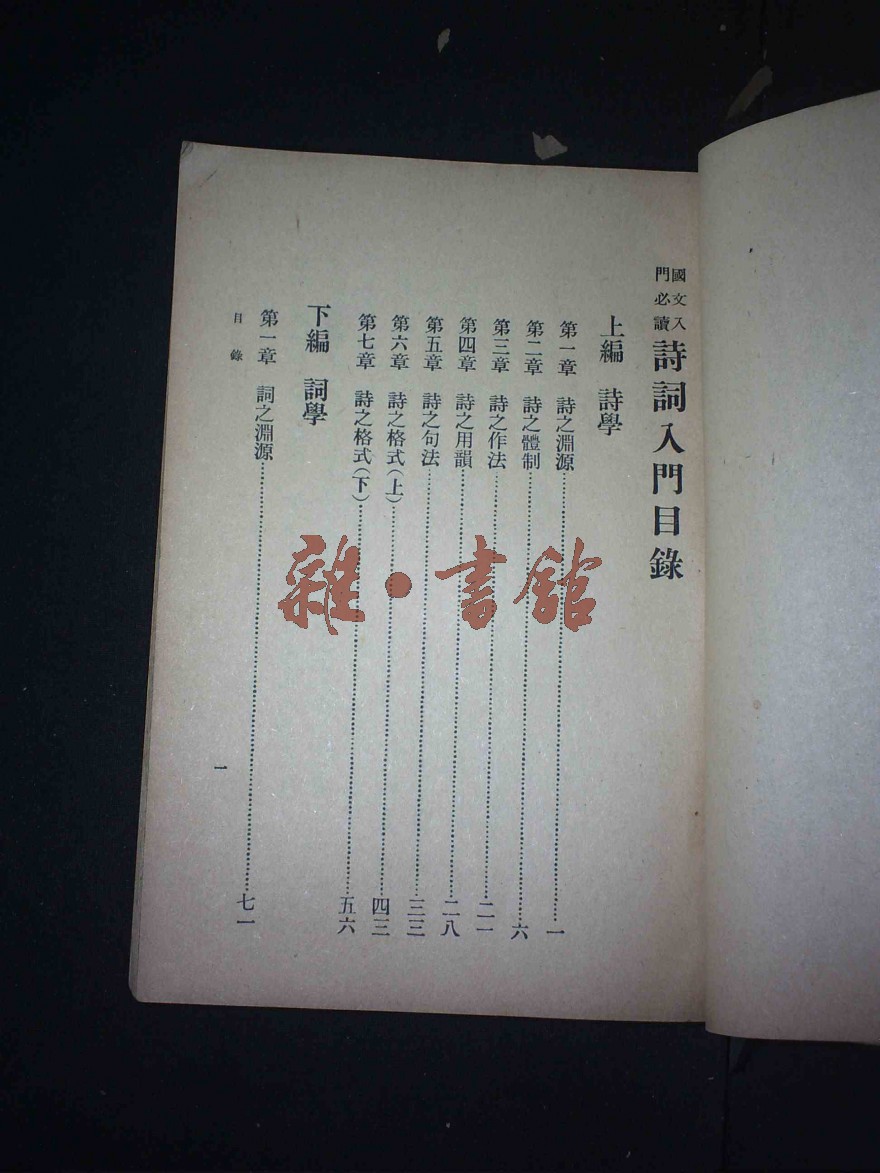 國文入門必讀 詩詞入門目錄
上編 詩學
第一章 詩之淵源……一
第二章 詩之體制……六
第三章 詩之作法……二一
第四章 詩之用韻……二八
第五章 詩之句法……三三
第六章 詩之格式(上)……四三
第七章 詩之格式(下)……五六
下編 詞學
第一章 詞之淵源……七一
目錄 一
雜·書館